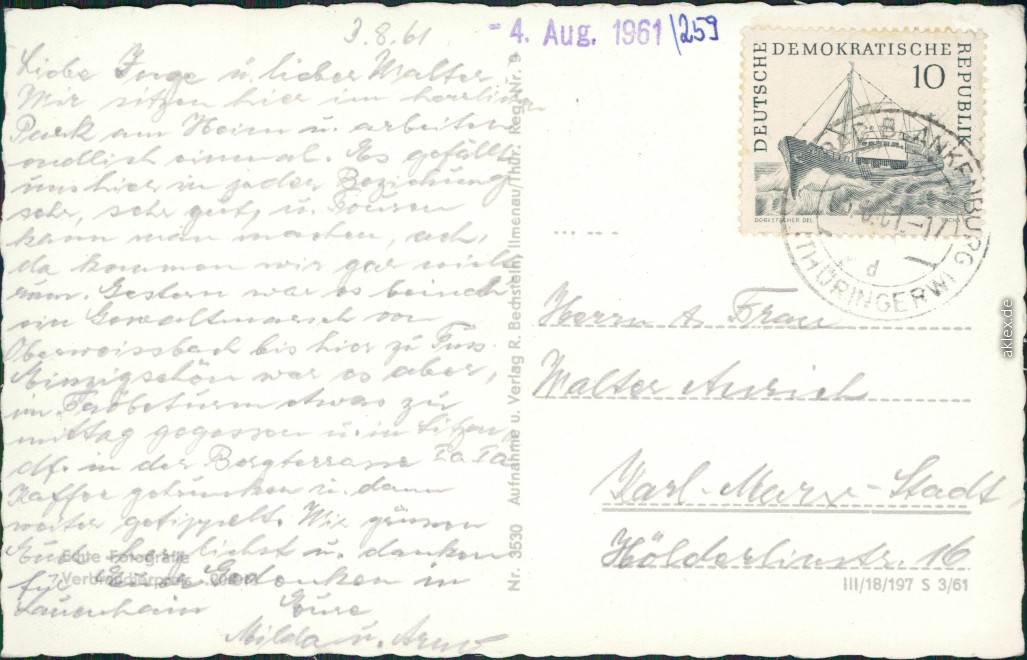 3.8.61
- 4. Aug. 1961 /259
Liebe Inge u. lieber Walter,
Wir sitzen hier im herrlichen
Park am Heim u. arbeiten
endlich einmal. Es gefällt
uns hier in jeder Beziehung
sehr, sehr gut, u. Touren
kann man machen, ach,
da kommen wir gar nicht
rum. Gestern war es beinah
ein Gewaltmarsch von
Oberweissbach bis hier zu Fuss.
Einzigschön war es aber,
im Fröbelturm etwas zu
mittag gegessen u. in Sitzen
df. in der Bergterrasse Ia Ia
Kaffee getrunken u. dann
weiter getippelt. Wir grüssen
Euch herzlichst u. danken
für Eure Gedenken in
Lauenhain Eure
Milda u.
Echte Fotografie
Verbraucherpreis
Nr. 3530 Aufnahme u. Verlag R. Bechstein, Ilmenau/Thür. Reg.-Nr. 9
DEUTSCHE DEMOKRATISCHE REPUBLIK
10
BLANKENBURG
(THÜRINGERW)
d
Herrn & Frau
Walter Aurich
Karl-Marx-Stadt
Hölderlinstr. 16
III/18/197 S 3/61
aklex.de